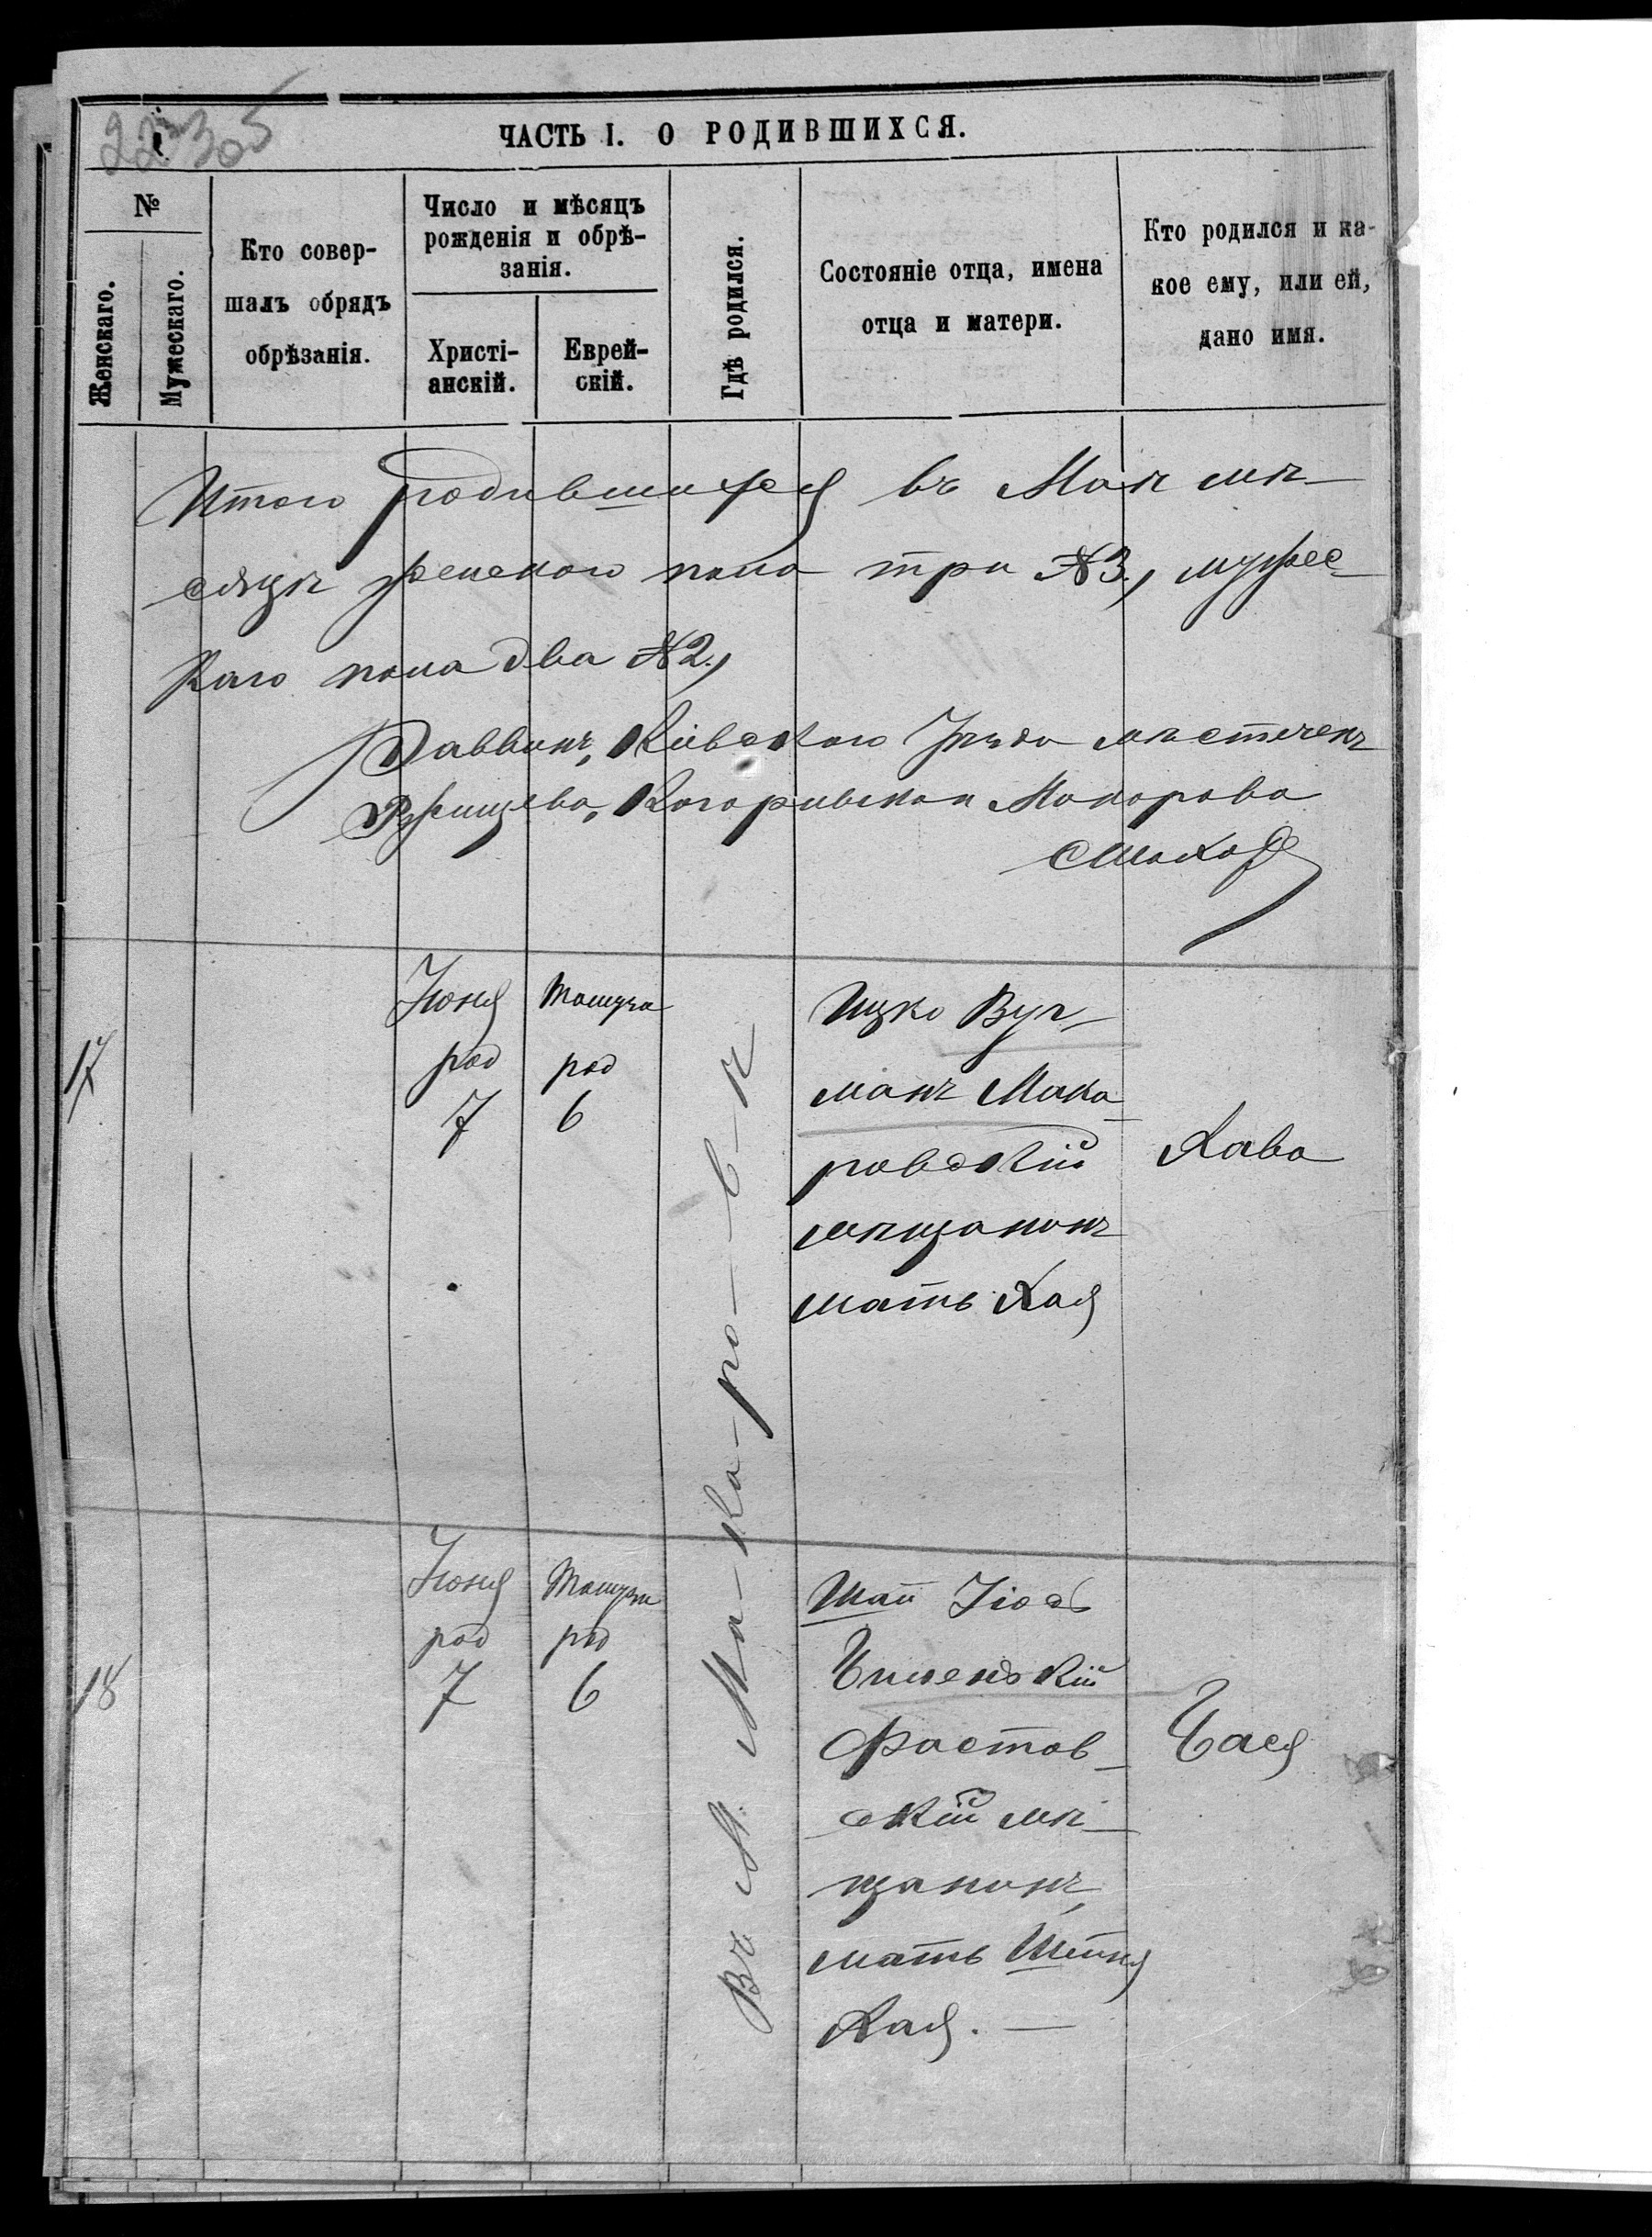 22 305
ЧАСТЬ I. О РОДИВШИХСЯ.
№
Женскаго.
Мужескаго.
Кто совер-
шалъ обрядъ
обрѣзанія.
Число и мѣсяцъ
рожденія и обрѣ-
занія.
Христі-
анскій.
Еврей-
скій.
Гдѣ родился.
Состояніе отца, имена
отца и матери.
Кто родился и ка-
кое ему, или ей,
дано имя.
Итого родившихся въ Маѣ мѣ-
сяцѣ женскаго пола три №3., мужес-
каго пола два №2.,
Раввинъ, Кіевскаго Уѣзда мѣстечекъ
Ржищева, Кагарлыка и Макарова
17
Іюня
род
7
Тамуза
род
6
Въ М. Ма-ка-ро-в-ѣ
Ицко Вуг-
манъ Мака-
ровскій
мѣщанинъ
мать Хая
Хава
18
Іюня
род
7
Тамуза
род
6
Шап Іось
Фастов-
скій мѣ-
щанинъ,
мать
Хая. —
Бася